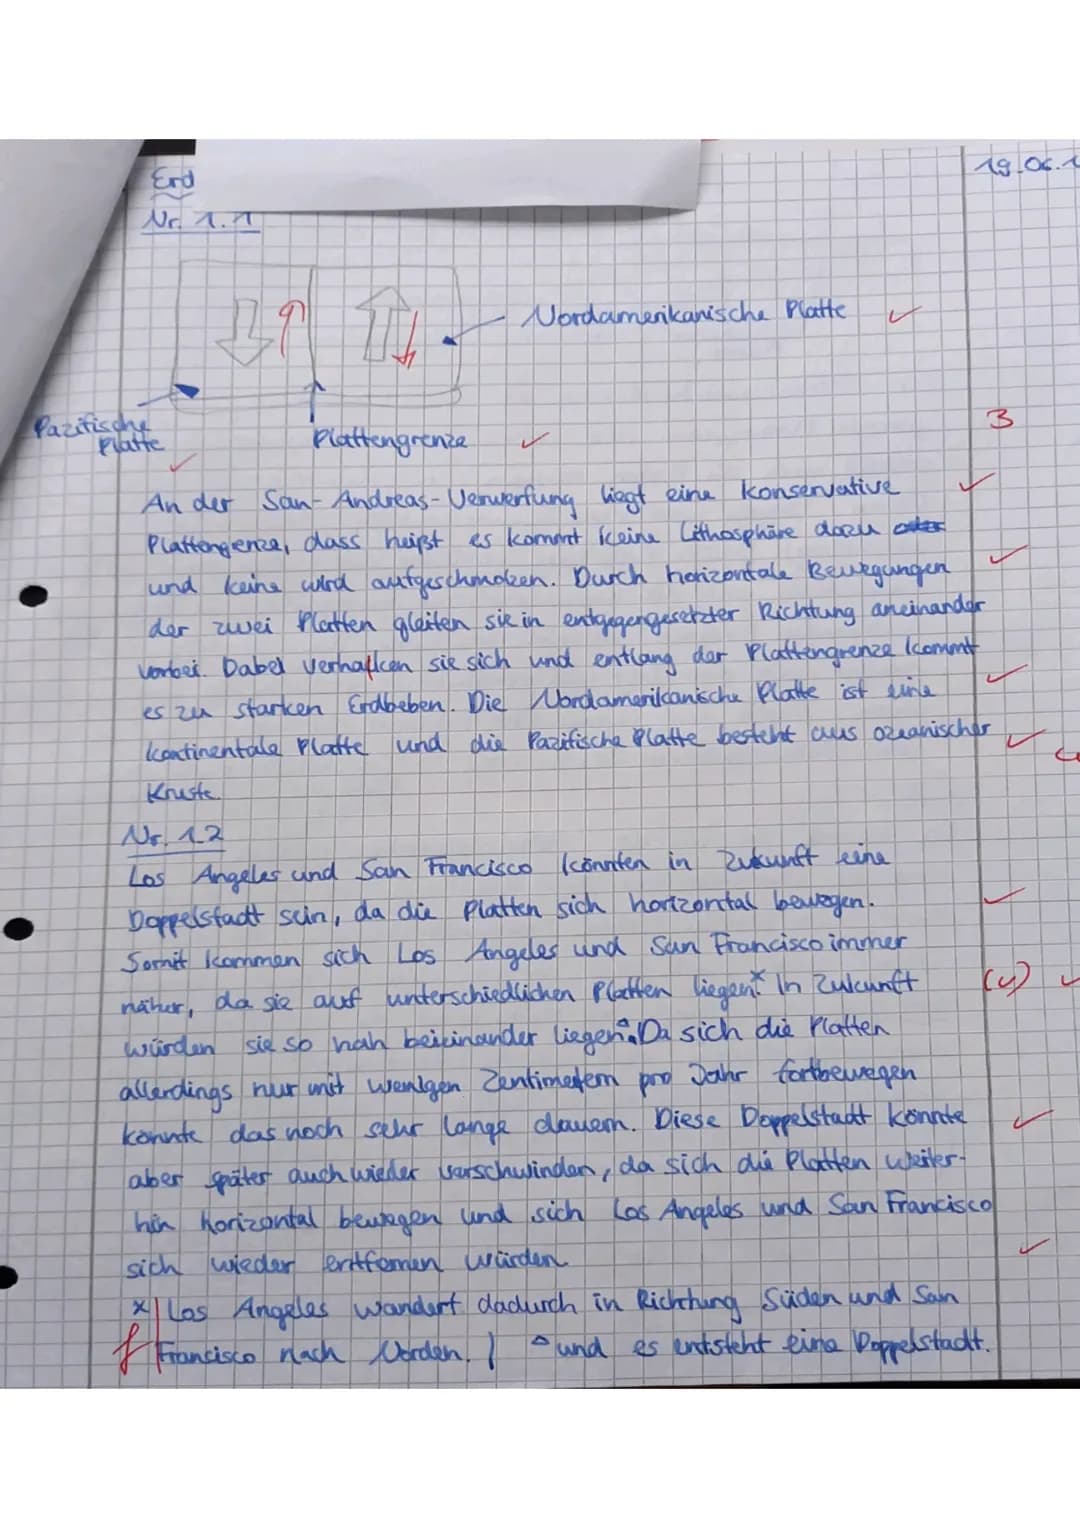 Erd
19.06.1
Nr. 1.1
Nordamerikanische Platte
Pazifische
Platte
Plattengrenze
3
An der San-Andreas-Verwerfung liegt eine konservative
Plattengenze, dass heißt es kommt keine Lithosphäre dazu
und keine wird aufgeschmolzen. Durch horizontale Bewegungen
der zwei Platten gleiten sie in entgegengesetzter Richtung aneinander
vorbei. Dabei verhaken sie sich und entlang der Plattengrenze kommt
es zu starken Erdbeben. Die Nordamerikanische Platte ist eine
kontinentale Platte und die Pazifische Platte besteht aus ozeanischer
Kruste.
Nr. 1.2
Los Angeles und San Francisco könnten in Zukunft eine
Doppelstadt sein, da die Platten sich horizontal bewegen.
Somit kommen sich Los Angeles und San Francisco immer
näher, da sie auf unterschiedlichen Platten liegen.x In Zukunft
(4)
würden sie so nah beieinander liegen△. Da sich die Platten
allerdings nur mit wenigen Zentimetern pro Jahr fortbewegen
könnte das noch sehr lange dauern. Diese Doppelstadt könnte
aber später auch wieder verschwinden, da sich die Platten weiter-
hin horizontal bewegen und sich Los Angeles und San Francisco
sich wieder entfernen würden.
x| Los Angeles wandert dadurch in Richtung Süden und San
f Francisco nach Norden. | △ und es entsteht eine Doppelstadt.